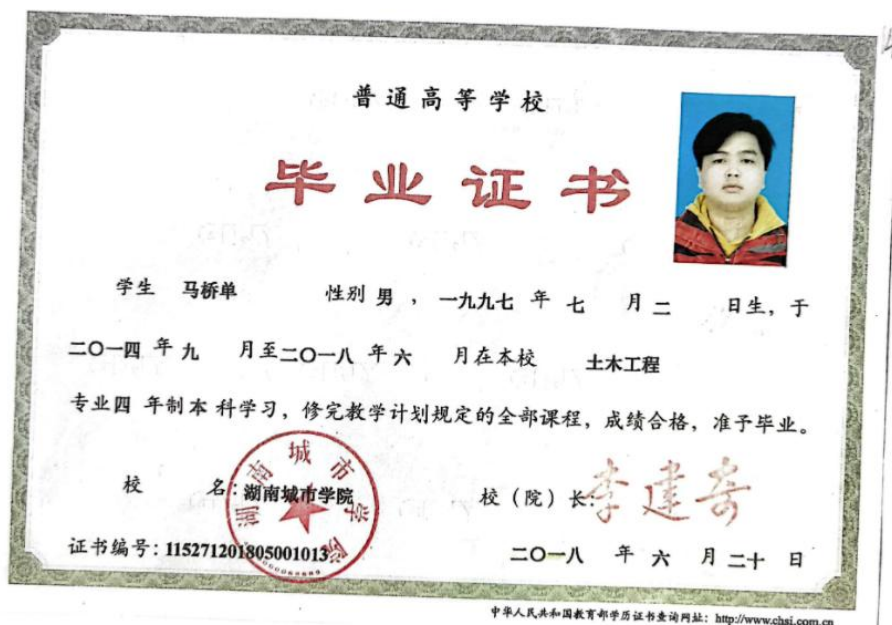 普通高等学校
毕业证书
学生 马桥单 性别 男 ， 一九九七 年 七 月 二 日生，于
二〇一四 年 九 月至二〇一八 年 六 月在本校 土木工程
专业四 年制本 科学习，修完教学计划规定的全部课程，成绩合格，准予毕业。
校 名：湖南城市学院
湖南城市学院
校（院）长：李建奇
证书编号：115271201805001013
二〇一八 年 六 月 二十 日
中华人民共和国教育部学历证书查询网址：http://www.chsi.com.cn